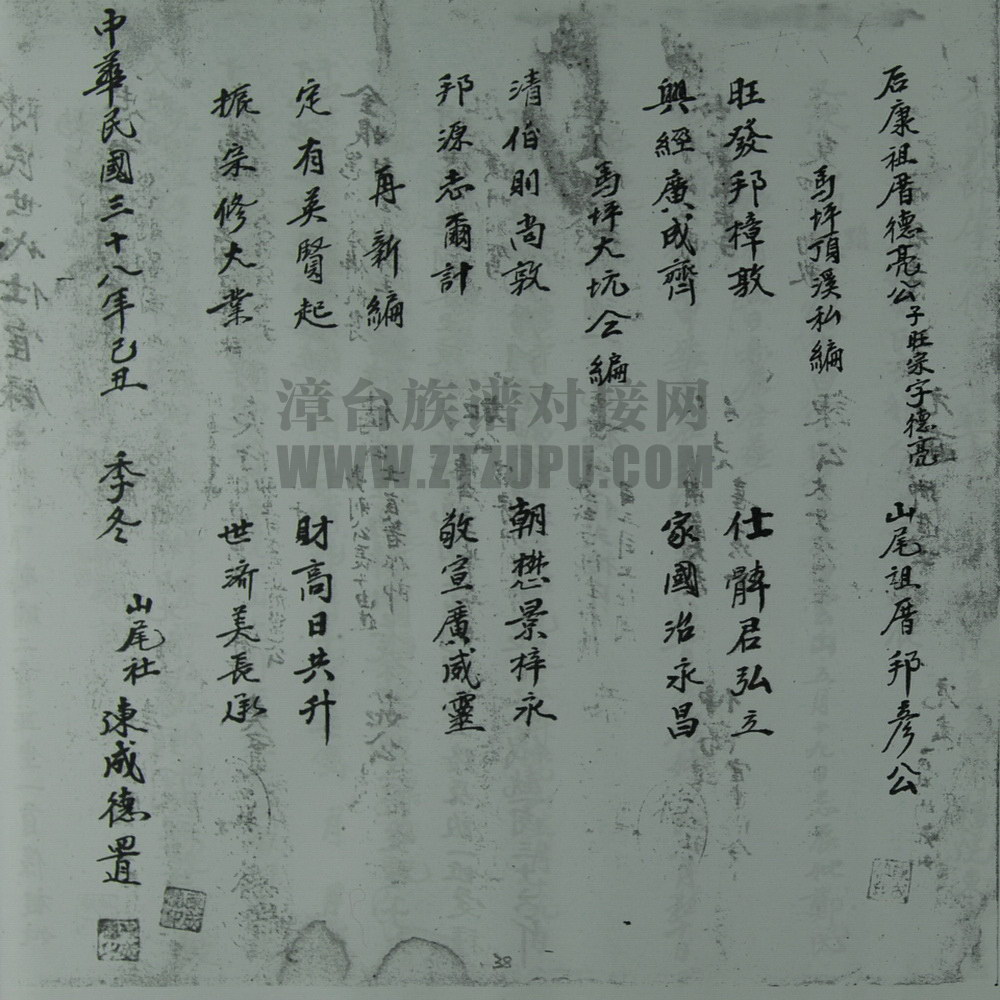 后康祖厝德亮公子旺宗字德亮 山尾祖厝邦彦公
馬坪頂溪私編
旺發邦樟敦 仕髀君弘立
興經廣成齊 家國治永昌
馬坪大坑仝編
清伯則尚敦 朝懋景梓永
邦源志爾計 敬宣廣威靈
再新編
定有英賢起 財高日共升
振宗修大業 世濟美長承
中華民國三十八年己丑 季冬 山尾社 陳成德置
漳台族谱对接网
WWW.ZTZUPU.COM
38